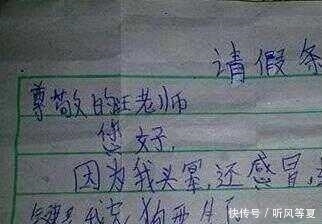 请假条
尊敬的旺老师
您好,
因为我头晕,还感冒,
我家狗要生
快传号 / 听风等夏